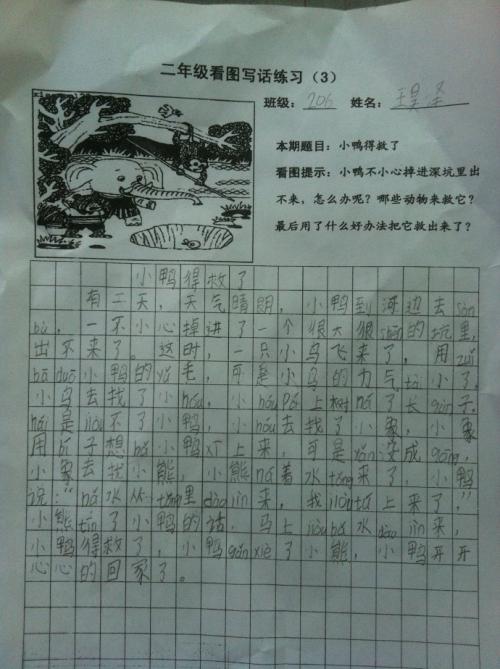 二年级看图写话练习（3）
班级：206 姓名：
本期题目：小鸭得救了
看图提示：小鸭不小心掉进深坑里出
不来，怎么办呢？哪些动物来救它？
最后用了什么好办法把它救出来了？
小鸭得救了
有一天，天气晴朗，小鸭到河边去sàn
bù，一不小心掉进了一个很大很shēn的坑里，
出不来了。这时，一只小鸟飞来了，用zuǐ
小鸭的yǔ毛，可是小鸟的力气tài小了，
小鸟去找了小hóu，小hóu pá上树ná了长gān子，
是jiù不了小鸭，小hóu去找了小象，小象
用bí子想bǎ小鸭 上来，可是 成gōng，
小象去找小熊，小熊ná着水tǒng来了，小鸭
说：“bǎ水从tǒng里dào jìn来，我jiù 上来了。”
小熊tīng了小鸭的话，马上jiù bǎ水dào jìn来，
小鸭得救了，小鸭gǎn xiè了小熊，小鸭开开
心心的回家了。